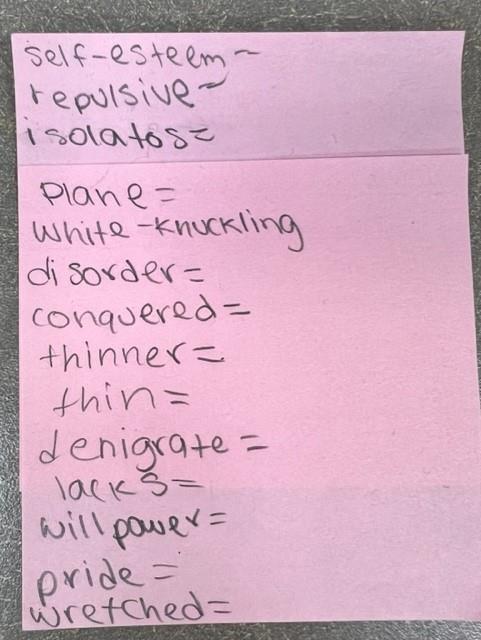 self-esteem-
repulsive-
isolatos=
Plane=
White-Knuckling
disorder=
conquered=
thinner=
thin=
denigrate=
lacks=
willpower=
pride=
wretched=